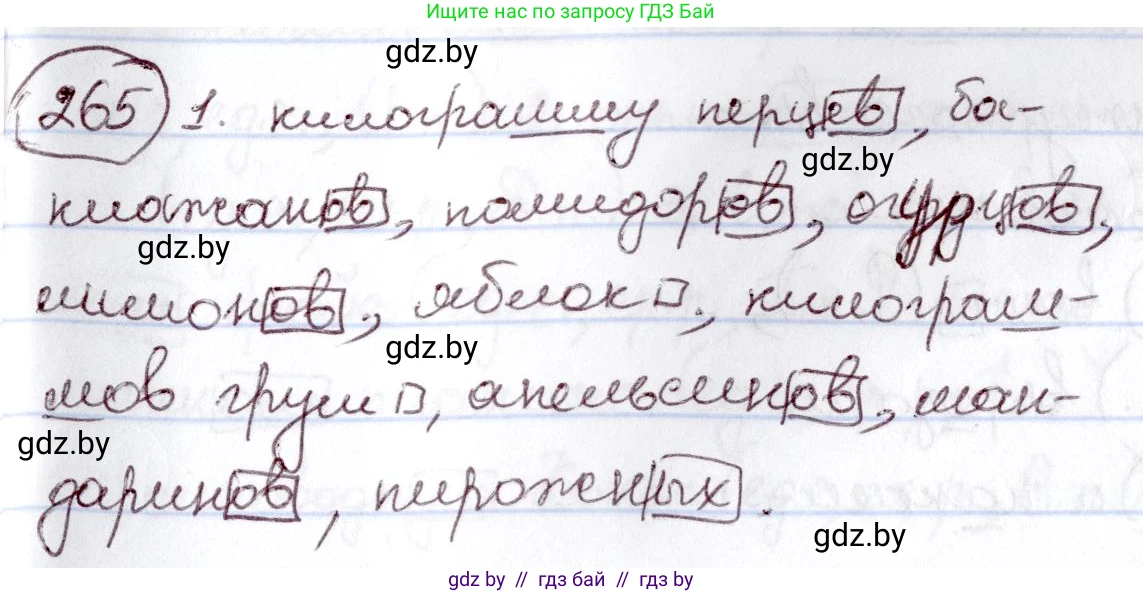 Ищите нас по запросу ГДЗ Бай
gdz.by
265 1. килограмму перцев, ба-
gdz.by
клажанов, помидоров, огурцов,
gdz.by
лимонов, яблок, килограм-
gdz.by
мов груш, апельсинов, ман-
gdz.by
даринов, пирожных.
gdz.by
gdz by // гдз бай // гдз by